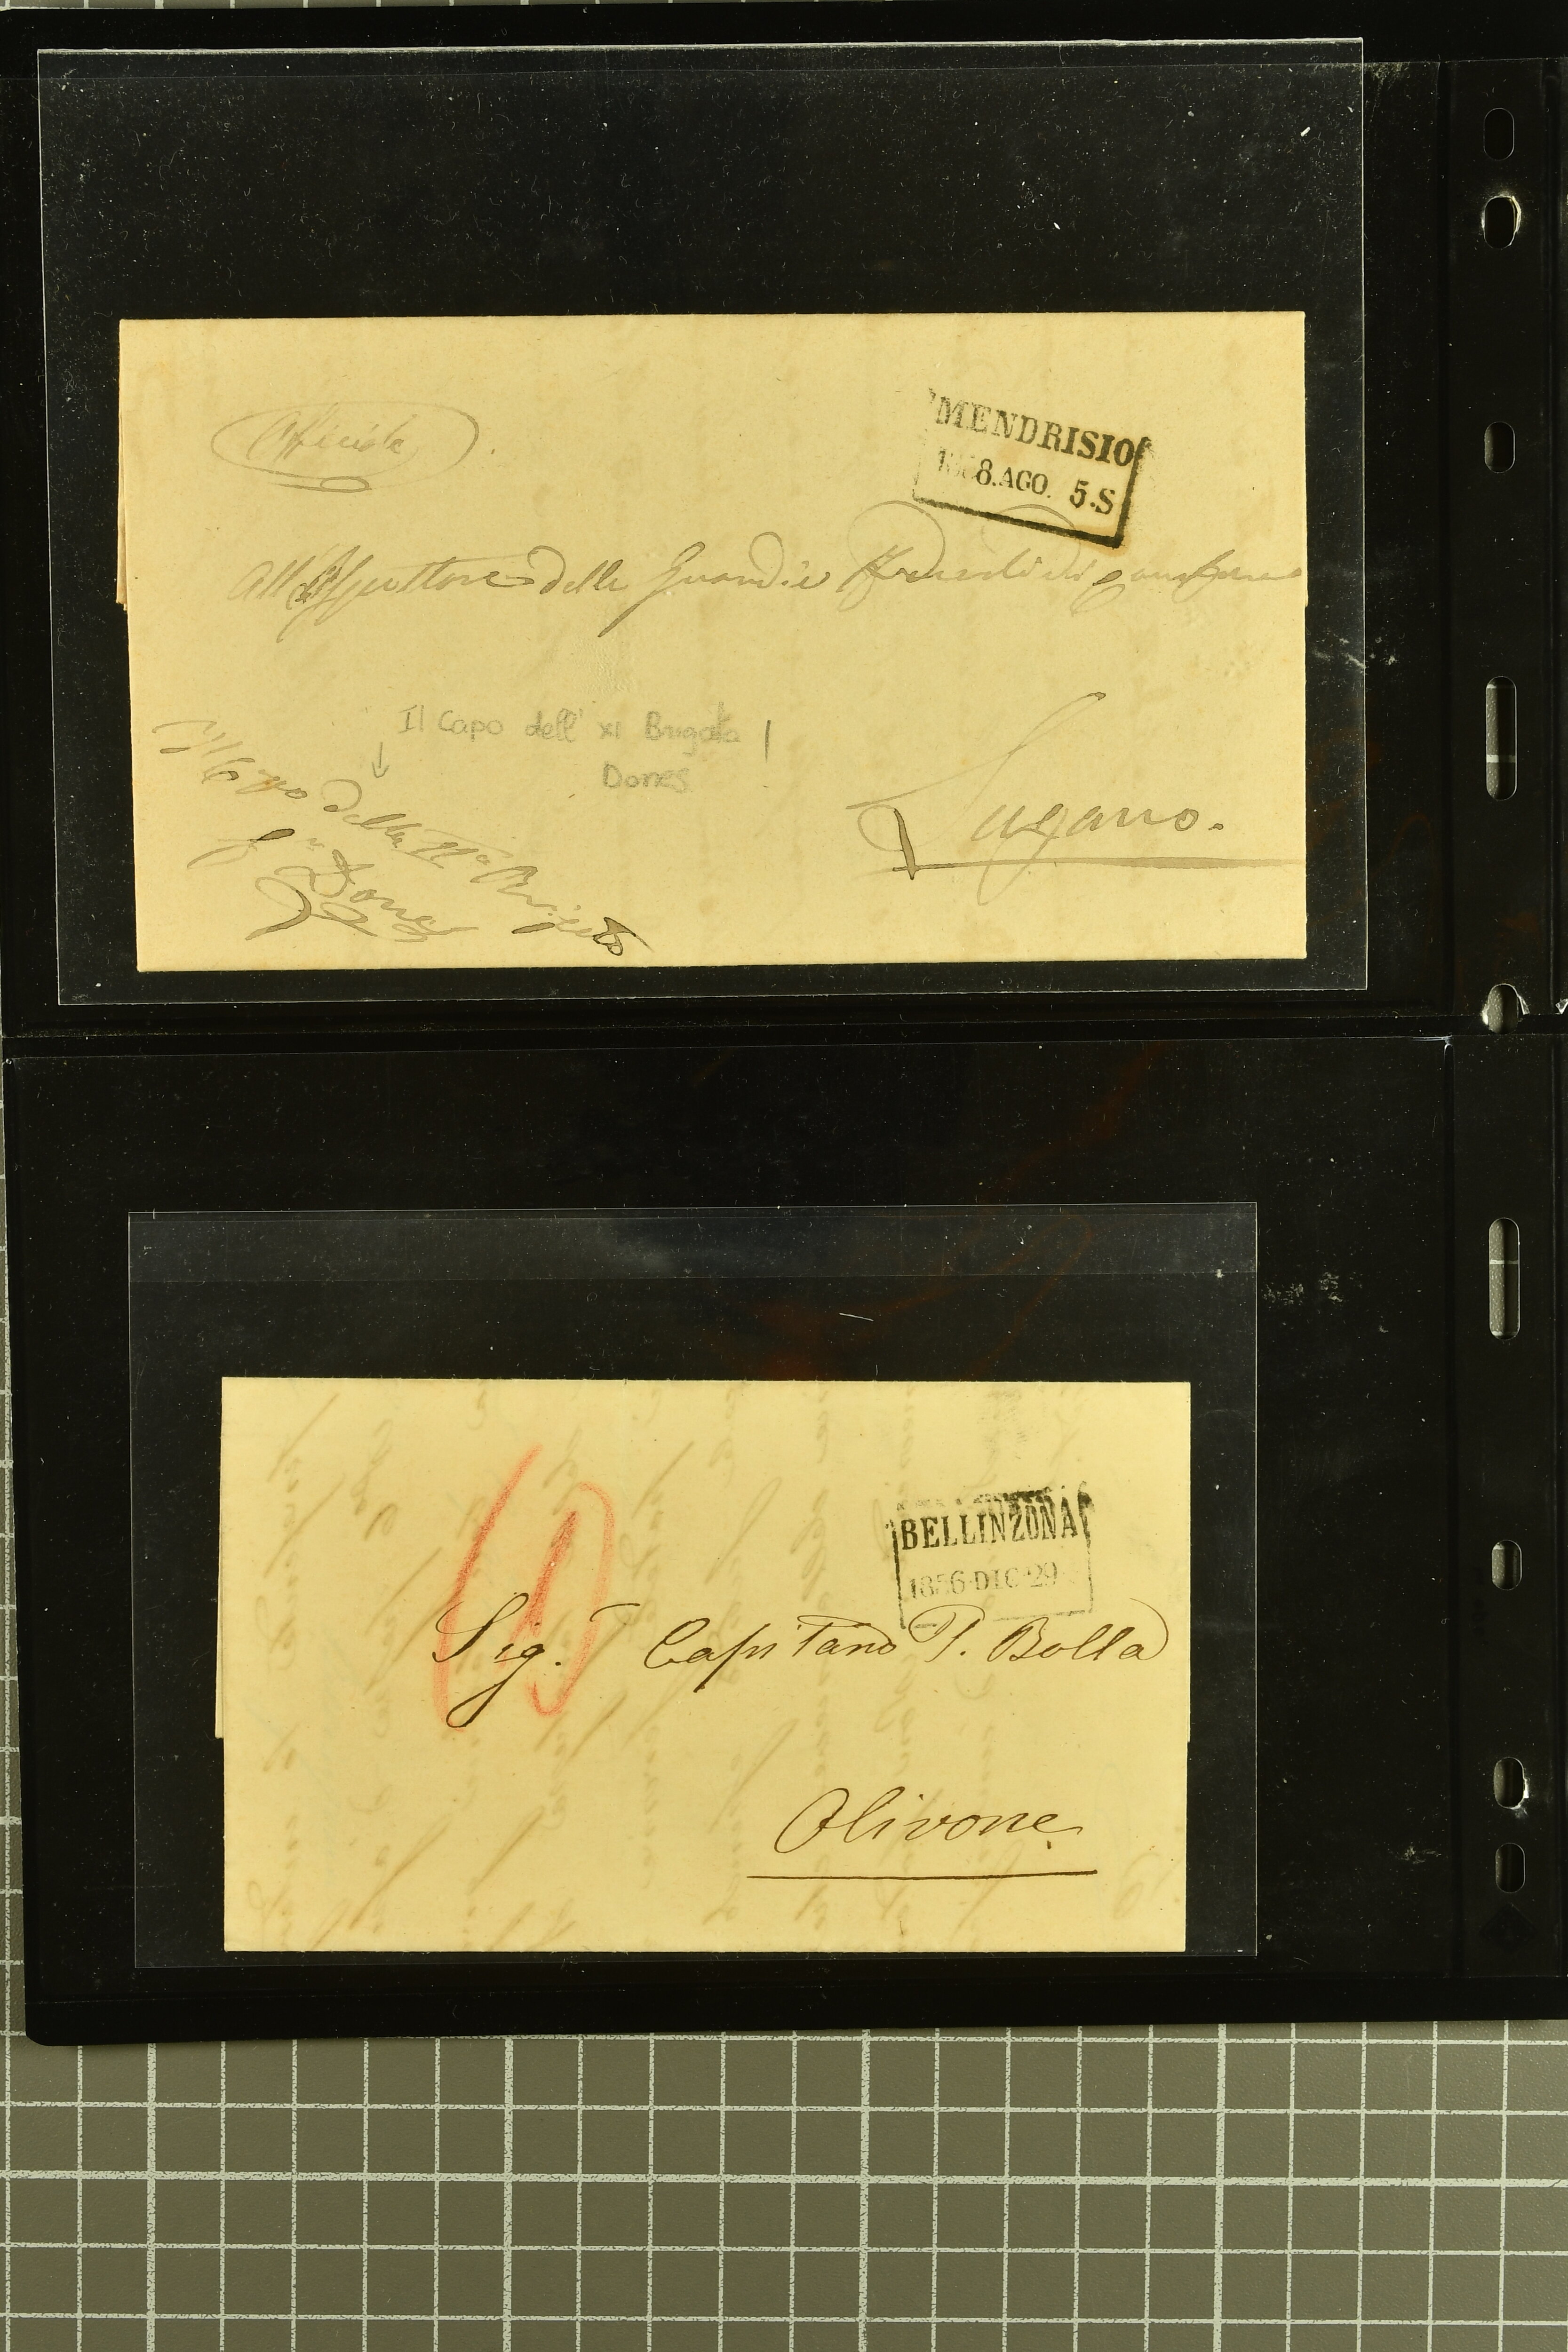 Officiale
MENDRISIO
8.AGO. 5.S
All'Ispettore delle Guardie Federali di
Il Capo dell' XI Brigata
Dones
Il Capo della 11ª Brigata
Dones
Lugano.
BELLINZONA
1856 DIC 29
10
Sig.r Capitano P. Bolla
Olivone.